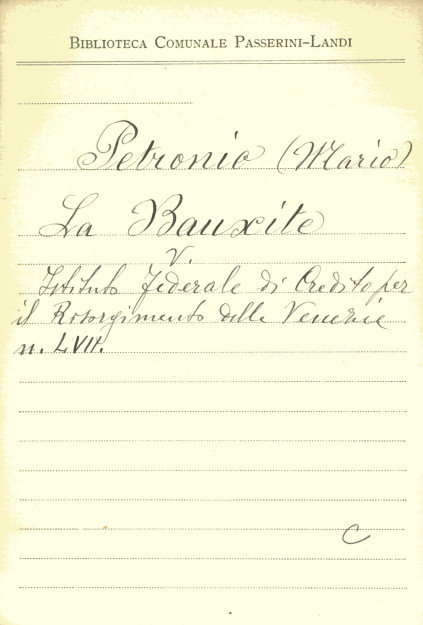 BIBLIOTECA COMUNALE PASSERINI-LANDI
Petronio (Mario)
La Bauxite
V.
Istituto Federale di Credito per
il Risorgimento delle Venezie
n. LVII.
C